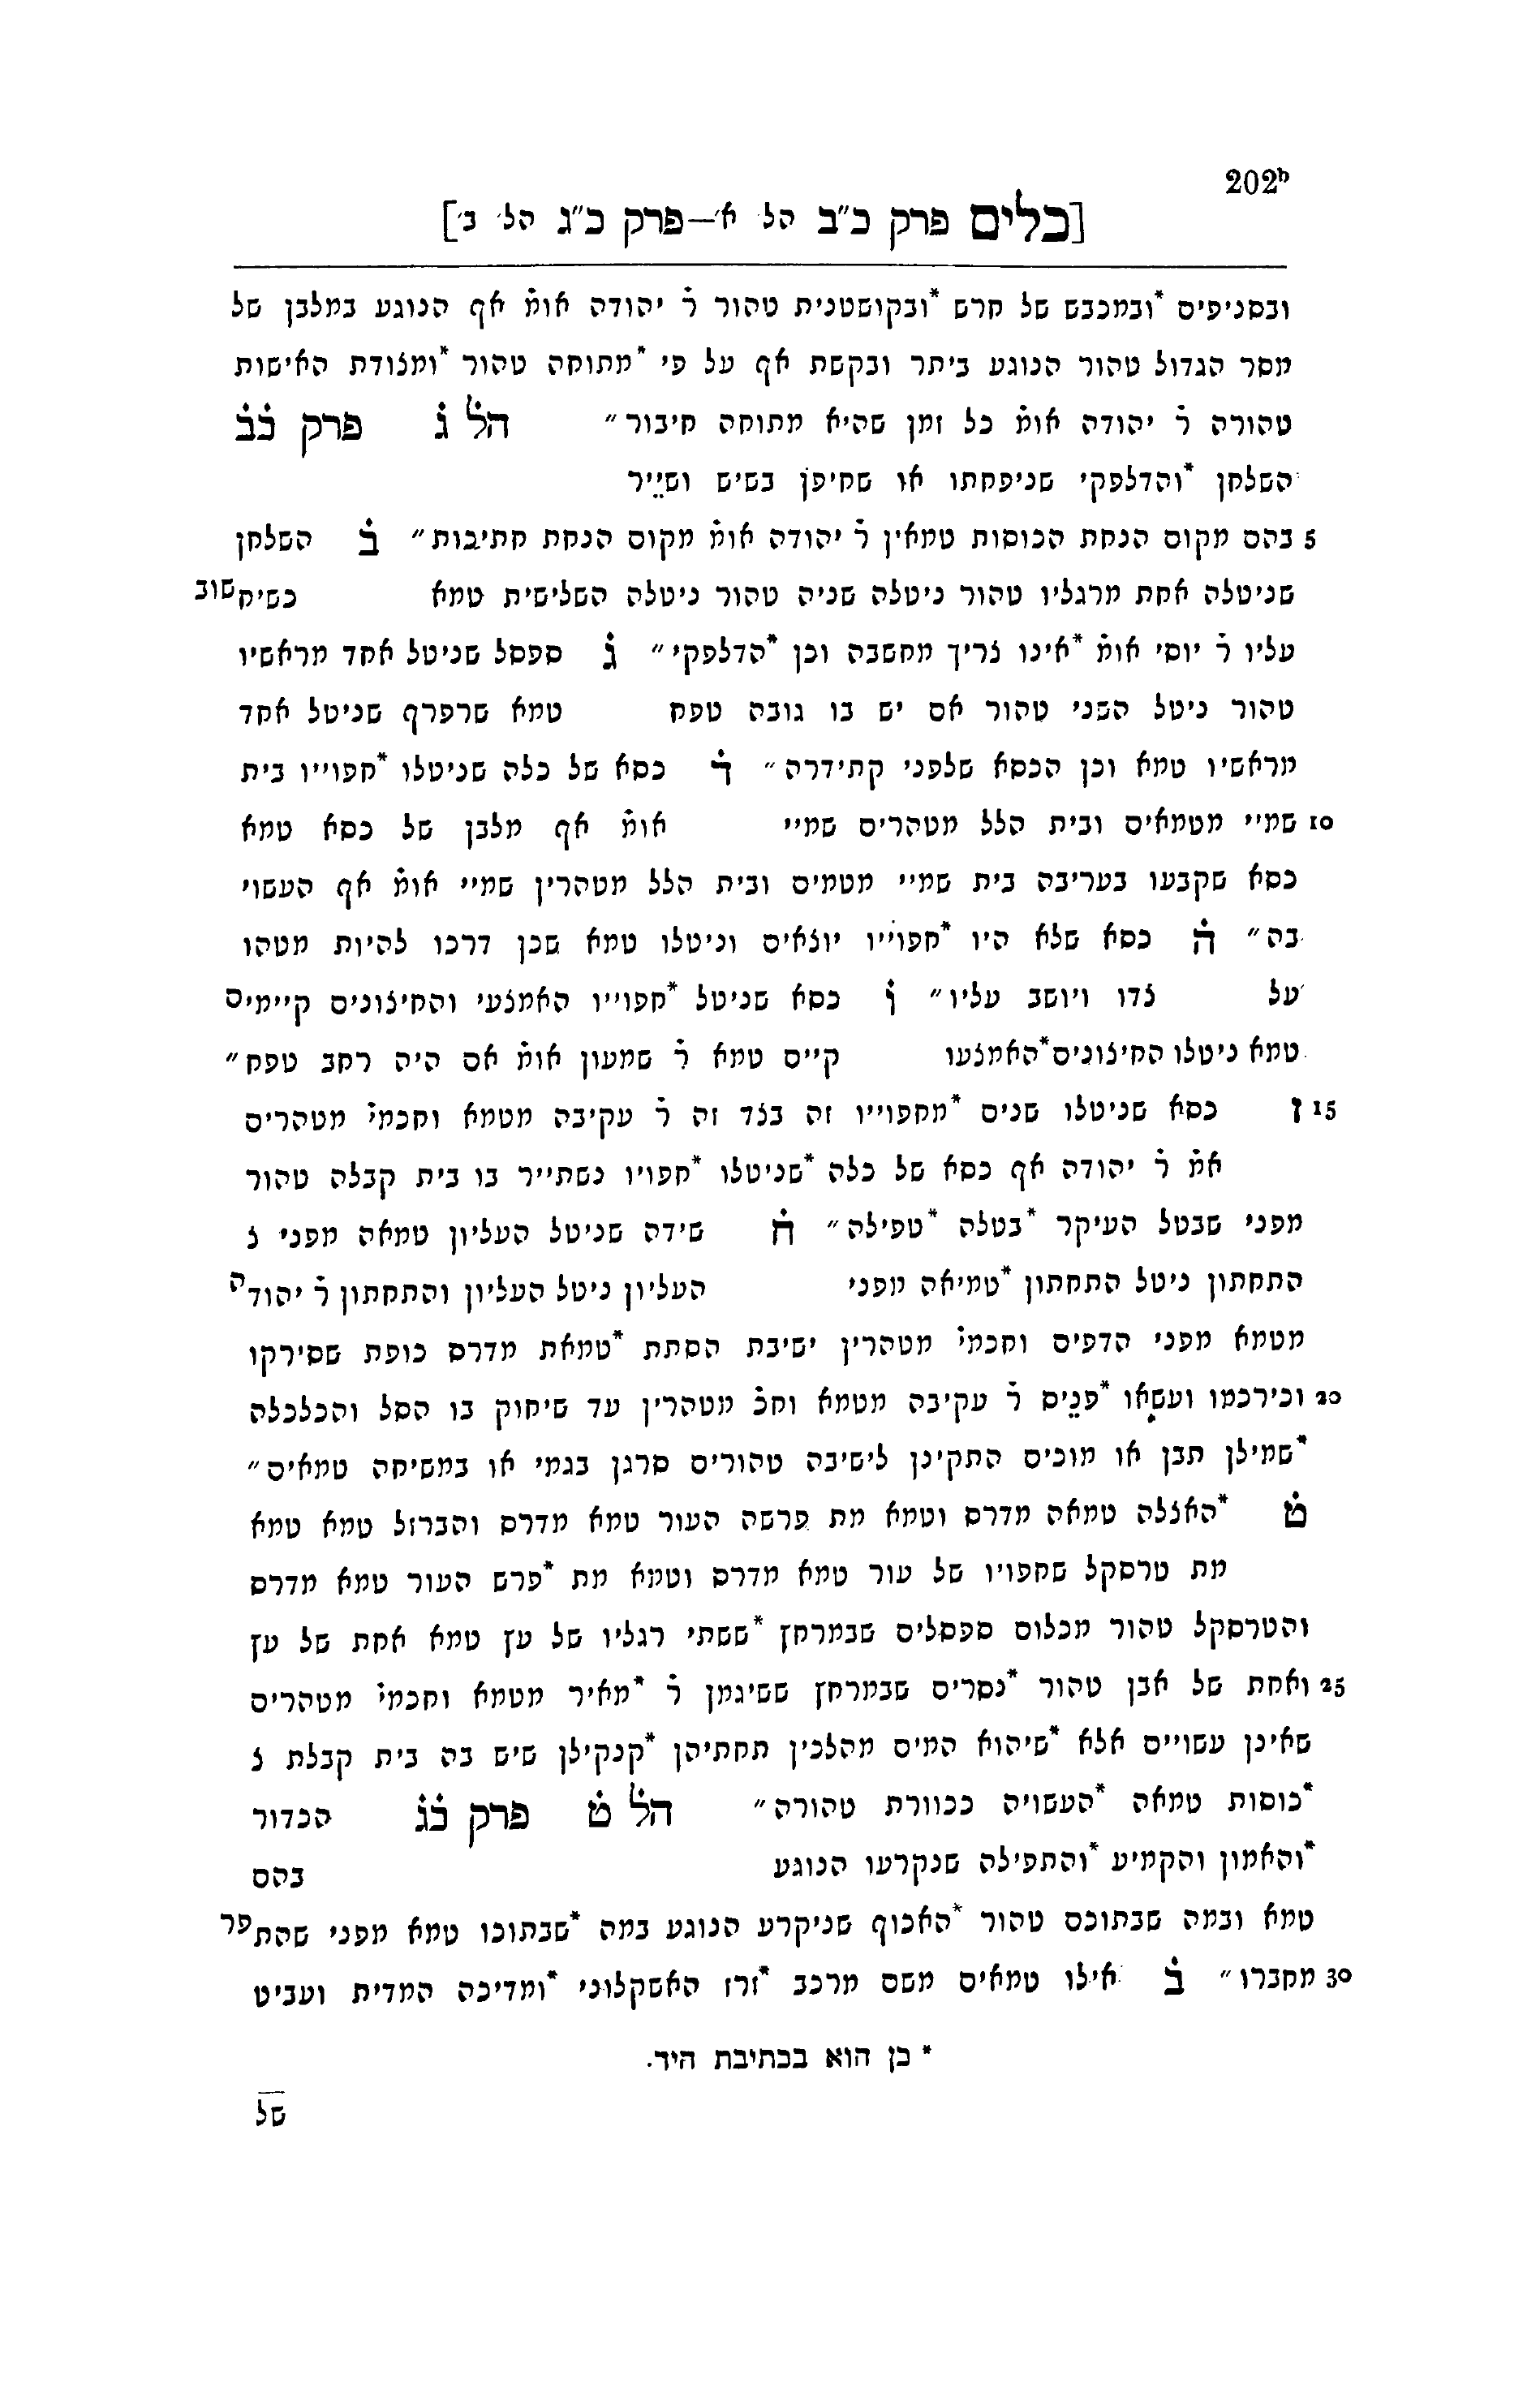 202ᵇ
[כלים פרק כ״ב הל׳ א׳—פרק כ״ג הל׳ ב׳]
ובסניפים *ובמכבש של חרש *ובקושטנית טהור ר̇ יהודה אומ̇ אף הנוגע במלבן של
מסר הגדול טהור הנוגע ביתר ובקשת אף על פי *מתוחה טהור *ומצודת האישות
טהורה ר̇ יהודה אומ̇ כל זמן שהיא מתוחה חיבור״ הל̇ ג̇ פרק כ̇ב̇
השלחן *והדלפקי שניפחתו או שחיפן בשיש ושייר
5 בהם מקום הנחת הכוסות טמאין ר̇ יהודה אומ̇ מקום הנחת חתיבות״ ב̇ השלחן
שניטלה אחת מרגליו טהור ניטלה שניה טהור ניטלה השלישית טמא כשיחשוב
עליו ר̇ יוסי אומ̇ *אינו צריך מחשבה וכן *הדלפקי״ ג̇ ספסל שניטל אחד מראשיו
טהור ניטל השני טהור אם יש בו גובה טפח טמא שרפרף שניטל אחד
מראשיו טמא וכן הכסא שלפני קתידרה״ ד̇ כסא של כלה שניטלו *חפוייו בית
10 שמיי מטמאים ובית הלל מטהרים שמיי אומ̇ אף מלבן של כסא טמא
כסא שקבעו בעריבה בית שמיי מטמים ובית הלל מטהרין שמיי אומ̇ אף העשוי
בה״ ה̇ כסא שלא היו *חפוייו יוצאים וניטלו טמא שכן דרכו להיות מטהו
על צדו ויושב עליו״ ו̇ כסא שניטל *חפוייו האמצעי והחיצונים קיימים
טמא ניטלו החיצונים *האמצעו קיים טמא ר̇ שמעון אומ̇ אם היה רחב טפח״
15 ז̇ כסא שניטלו שנים *מחפוייו זה בצד זה ר̇ עקיבה מטמא וחכמי̇ מטהרים
אמ̇ ר̇ יהודה אף כסא של כלה *שניטלו *חפויו נשתייר בו בית קבלה טהור
מפני שבטל העיקר *בטלה *טפילה״ ח̇ שידה שניטל העליון טמאה מפני צ
התחתון ניטל התחתון *טמיאה מפני העליון ניטל העליון והתחתון ר̇ יהודה
מטמא מפני הדפים וחכמי̇ מטהרין ישיבת הסתת *טמאת מדרס כופת שסירקו
20 וכירכמו ועשאו *פנים ר̇ עקיבה מטמא וחכ̇ מטהרין עד שיחוק בו הסל והכלכלה
*שמילן תבן או מוכים התקינן לישיבה טהורים סרגן בגמי או במשיחה טמאים״
ט̇ *האצלה טמאה מדרס וטמא מת פרשה העור טמא מדרס והברזל טמא טמא
מת טרסקל שחפויו של עור טמא מדרס וטמא מת *פרש העור טמא מדרס
והטרסקל טהור מכלום ספסלים שבמרחץ *ששתי רגליו של עץ טמא אחת של עץ
25 ואחת של אבן טהור *נסרים שבמרחץ ששיגמן ר̇ *מאיר מטמא וחכמי̇ מטהרים
שאינן עשויים אלא *שיהוא המים מהלכין תחתיהן *קנקילן שיש בה בית קבלת צ
*כוסות טמאה *העשויה ככוורת טהורה״ הל̇ ט̇ פרק כ̇ג̇ הכדור
*והאמון והקמיע *והתפילה שנקרעו הנוגע בהם
טמא ובמה שבתוכם טהור *האכוף שניקרע הנוגע במה *שבתוכו טמא מפני שהתפר
30 מחברו״ ב̇ אילו טמאים משם מרכב *זרז האשקלוני *ומדיכה המדית ועביט
* כן הוא בכתיבת היד.
של